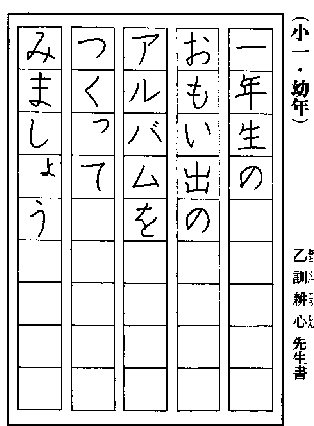 (小一・幼年)
乙訓耕心先生書
一年生の
おもい出の
アルバムを
つくって
みましょう